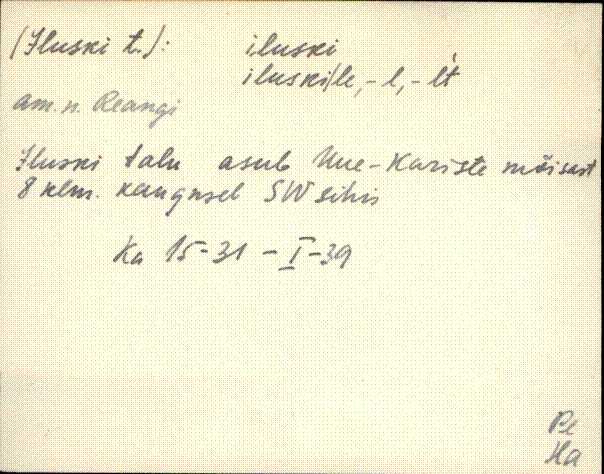 (Iluski t.): iluski
iluski/le, -l, -lt
am. n. Reangi
Iluski talu asub Uue-Kariste mõisast
8 klm. kaugusel SW sihis
Ka 15-31 - I -39
Pe
Ha